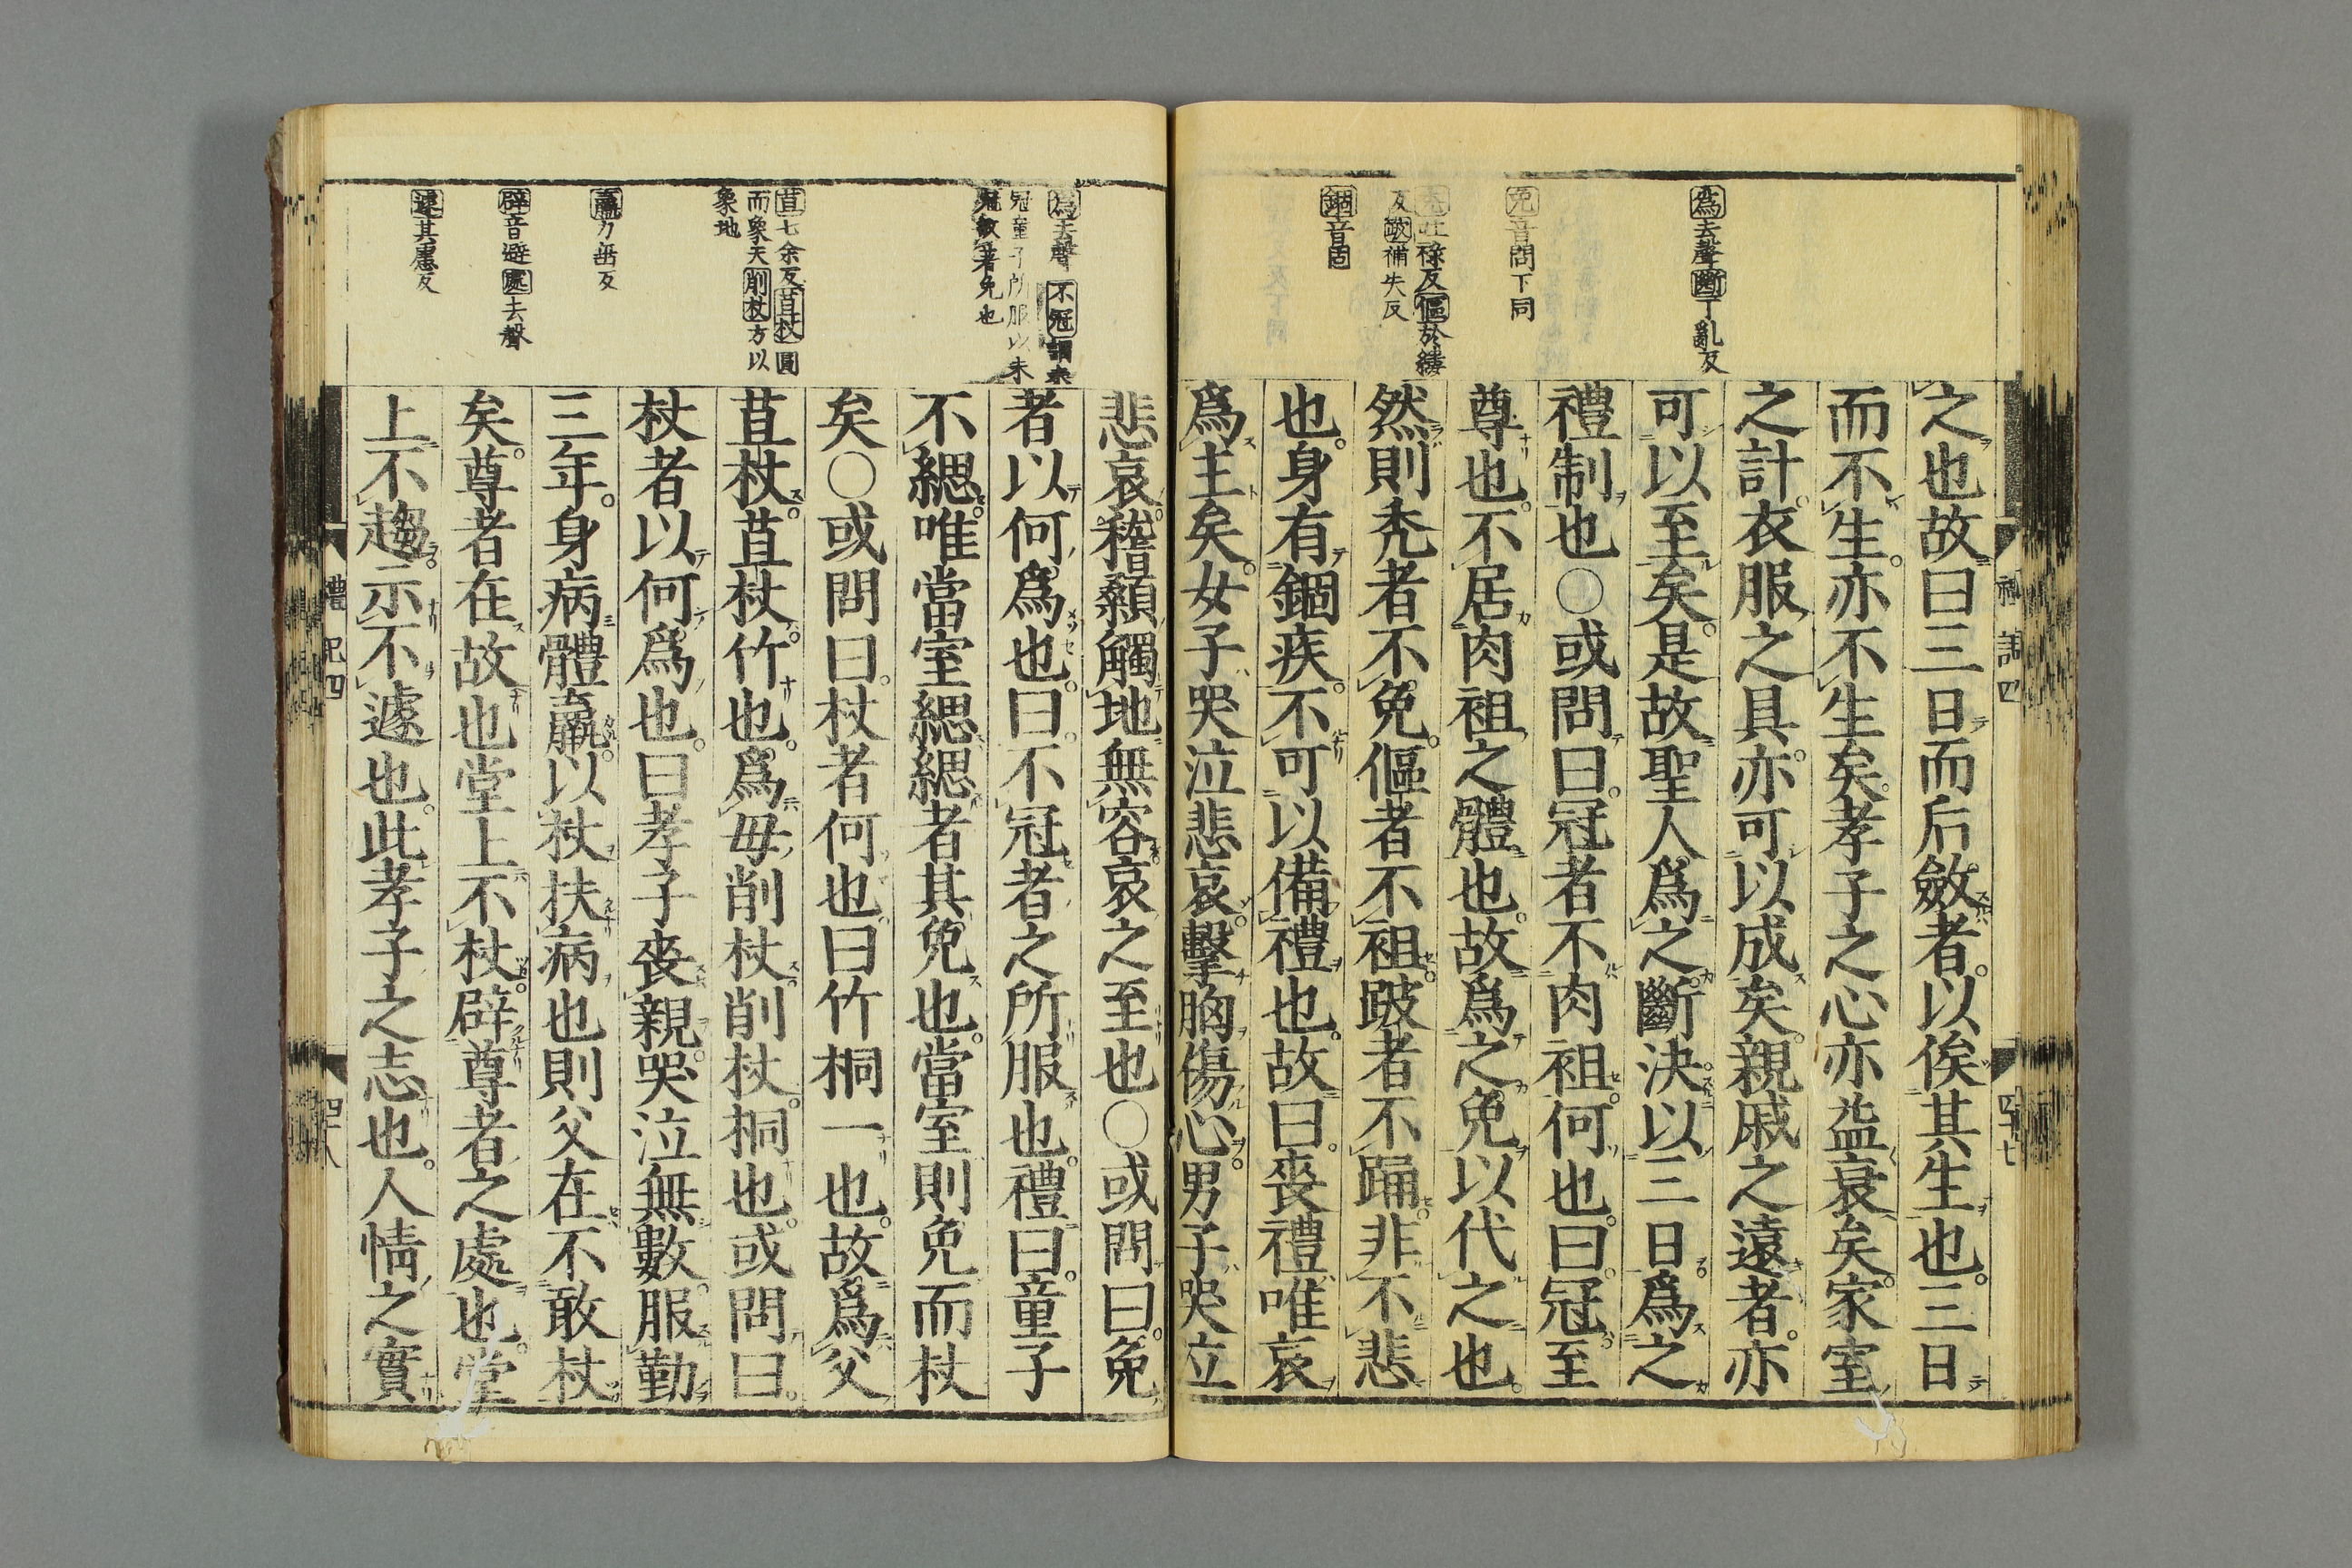 爲去聲斷丁亂反
免音問下同
禿吐祿反傴於縷
反跛補失反
錮音固
之也故曰三日而后斂者以俟其生也三日
而不生亦不生矣孝子之心亦益衰矣家室
之計衣服之具亦可以成矣親戚之遠者亦
可以至矣是故聖人爲之斷決以三日爲之
禮制也○或問曰冠者不肉袒何也曰冠至
尊也不居肉袒之體也故爲之免以代之也
然則禿者不免傴者不袒跛者不踊非不悲
也身有錮疾不可以備禮也故曰喪禮唯哀
爲主矣女子哭泣悲哀擊胸傷心男子哭泣
禮記四
四十七
爲去聲不冠謂未
冠童子所服以未
冠故著免也
苴七余反苴杖圓
而象天削杖方以
象地
羸力垂反
辟音避處去聲
遽其慮反
悲哀稽顙觸地無容哀之至也○或問曰免
者以何爲也曰不冠者之所服也禮曰童子
不緦唯當室緦緦者其免也當室則免而杖
矣○或問曰杖者何也曰竹桐一也故爲父
苴杖苴杖竹也爲母削杖削杖桐也或問曰
杖者以何爲也曰孝子喪親哭泣無數服勤
三年身病體羸以杖扶病也則父在不敢杖
矣尊者在故也堂上不杖辟尊者之處也堂
上不趨示不遽也此孝子之志也人情之實
禮記四
四十八